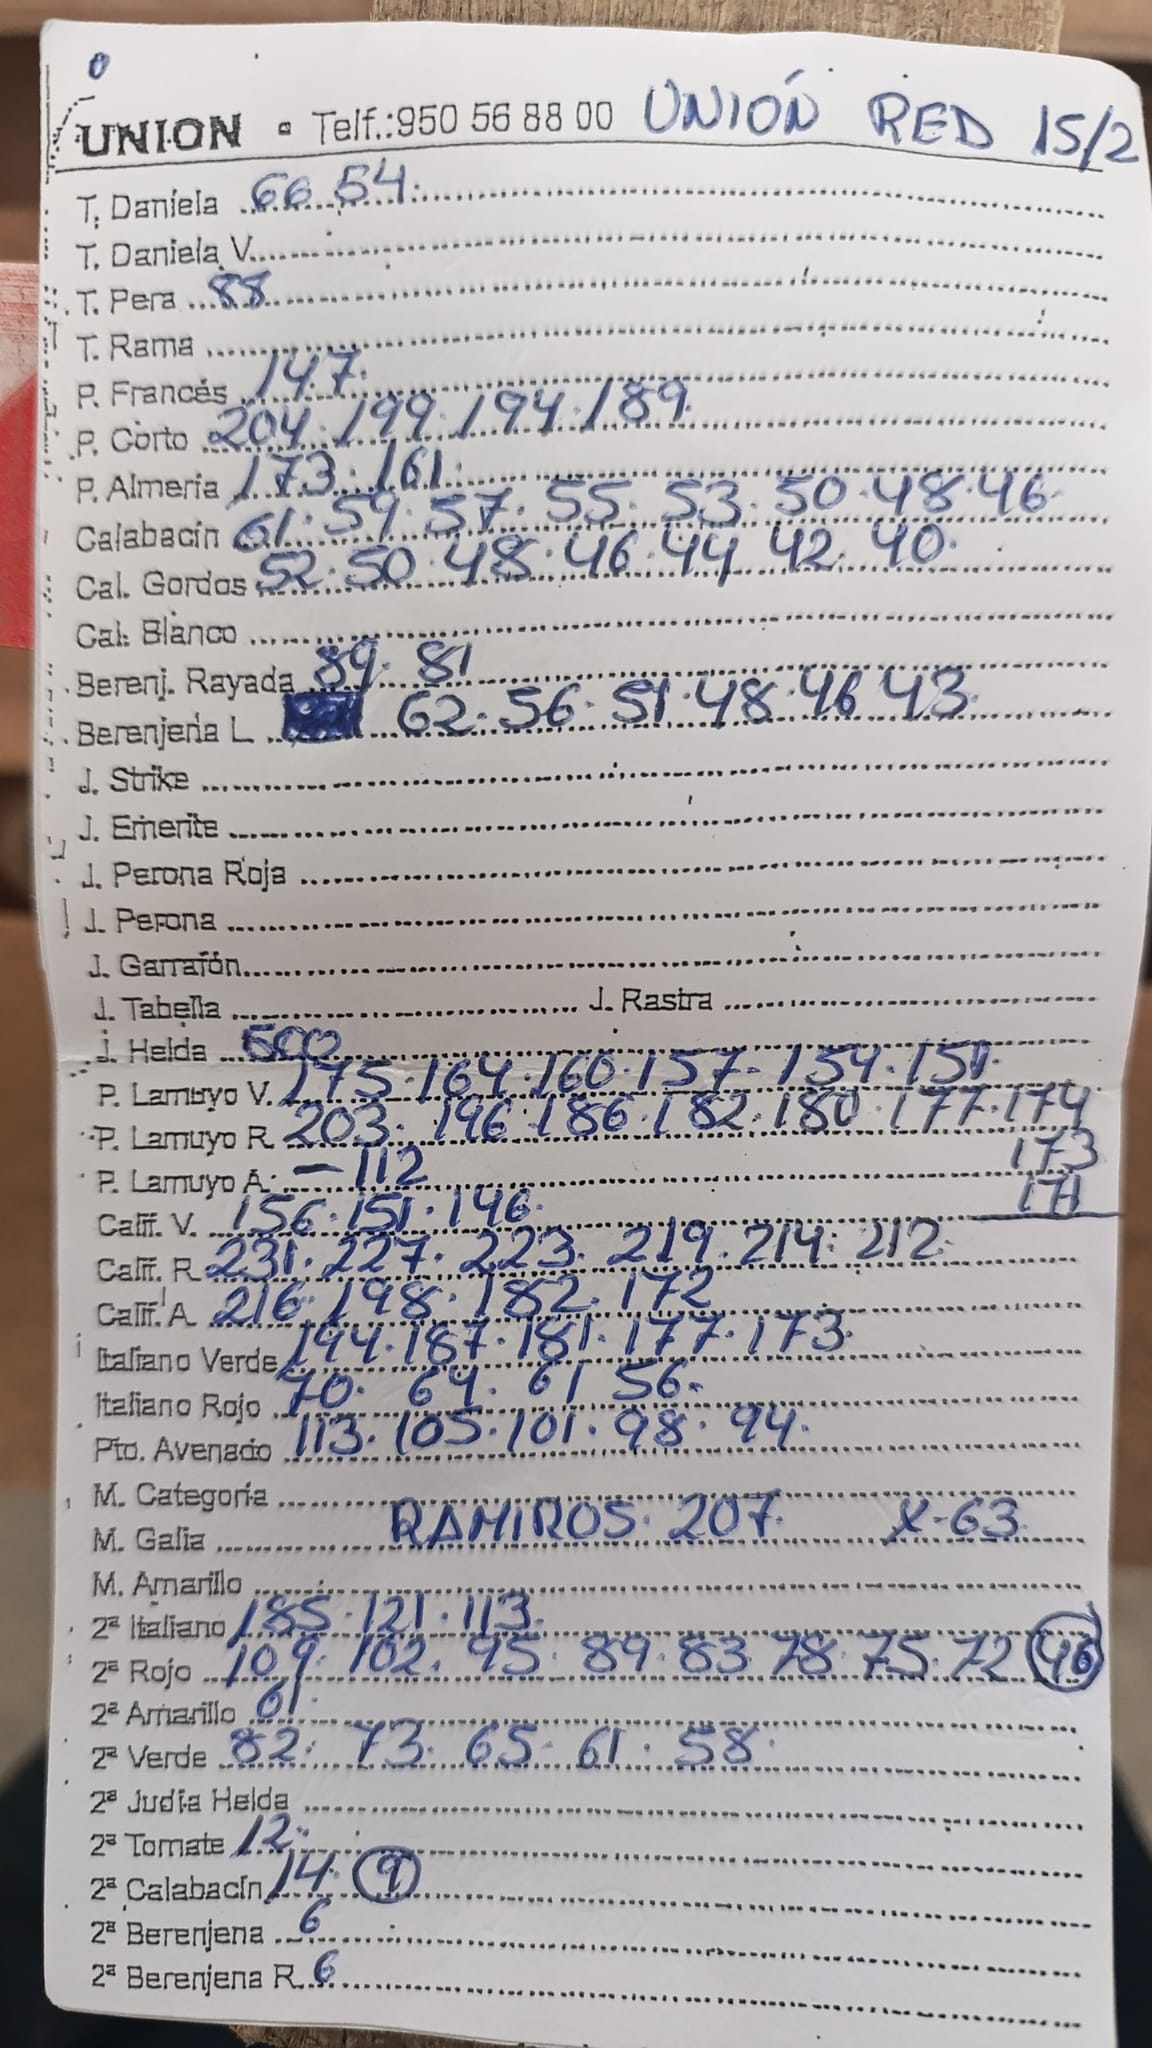 UNION - Telf.:950 56 88 00 UNIÓN RED 15/2
T. Daniela 66 54.
T. Daniela V.
T. Pera 88
T. Rama
P. Francés 147.
P. Corto 204. 199. 194. 189.
P. Almeria 173. 161.
Calabacín 61. 59. 57. 55. 53. 50. 48. 46
Cal. Gordos 52. 50. 48. 46. 44 42. 40.
Cal. Blanco
Berenj. Rayada 89. 81
Berenjena L. 62. 56. 51. 48. 46 43.
J. Strike
J. Emerite
J. Perona Roja
J. Perona
J. Garrafón
J. Tabella J. Rastra
J. Helda 500
P. Lamuyo V. 175. 164. 160. 157. 154. 151.
P. Lamuyo R. 203. 196. 186. 182. 180. 177. 174
173
P. Lamuyo A. - 112
171
Calif. V. 156. 151. 146.
Calif. R. 231. 227. 223. 219. 214. 212.
Calif. A. 216. 198. 182. 172
Italiano Verde 194. 187. 181. 177. 173.
Italiano Rojo 70. 64. 61 56.
Pto. Avenado 113. 105. 101. 98. 94.
M. Categoria
M. Galia RAMIROS. 207. X-63.
M. Amarillo
2ª Italiano 185. 121. 113.
2ª Rojo 109. 102. 95. 89. 83. 78. 75. 72 46
2ª Amarillo 61.
2ª Verde 82. 73. 65. 61. 58.
2ª Judía Helda
2ª Tomate 12.
2ª Calabacín 14. 9
2ª Berenjena 6
2ª Berenjena R. 6